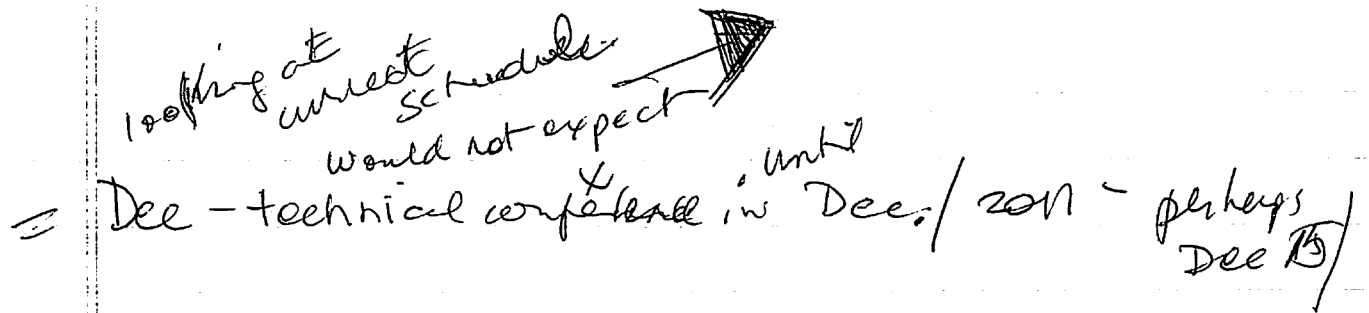 looking at
current
schedule
would not expect
until
= Dec - technical conference in Dec. / 2011 - perhaps
Dec 15/